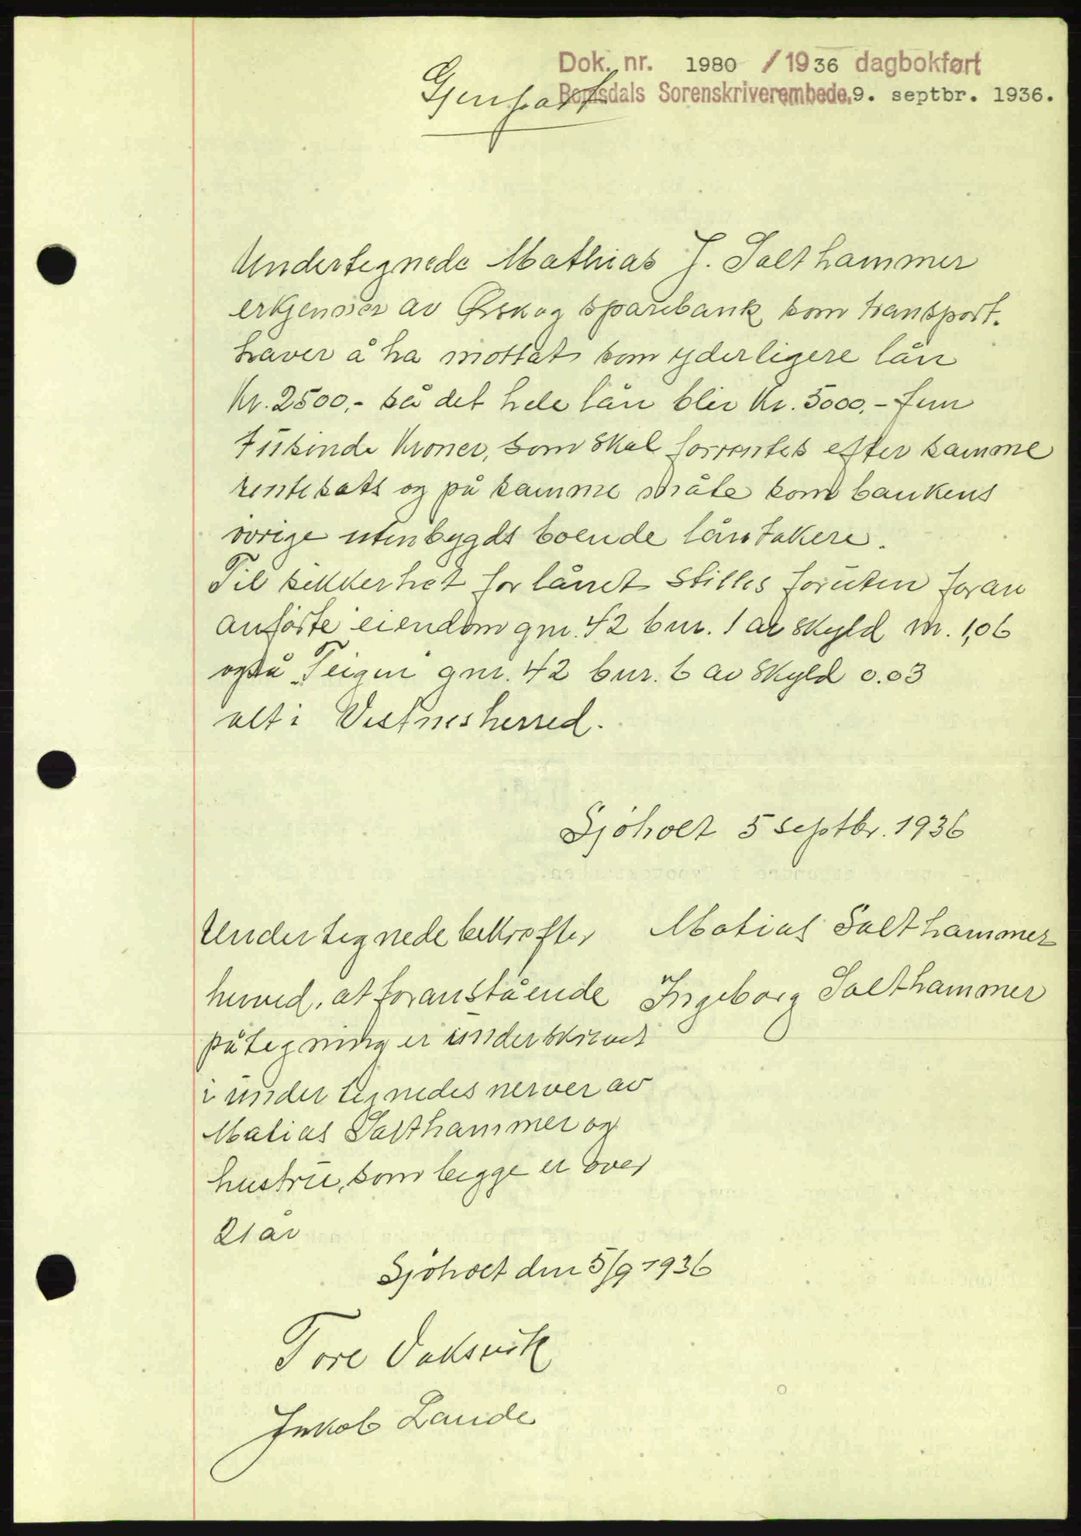 Dok. nr. 1980 /1936 dagbokført
Romsdals Sorenskriverembede. 9. septbr. 1936.
Gjenpart
Undertegnede Mathias J. Salthammer
erkjenner av Ørskog sparebank som transport.
haver å ha mottat som yderligere lån
Kr. 2500,- så det hele lån blir Kr. 5000,- fem
tusinde Kroner, som skal forrentes efter samme
rentesats og på samme måte som bankens
övrige utenbygds boende låntakere.
Til sikkerhet for lånet stilles foruten foran
anförte eiendom gnr. 42 bnr. 1 av skyld m. 1,06
også "Teigen" gnr. 42 bnr. 6 av skyld 0.03
alt i Vestnes herred.
Sjöholt 5 septbr. 1936
Undertegnede bekrefter Matias Salthammer
herved, at foranstående Ingeborg Salthammer
påtegning er underskrevet
i undertegnedes nerver av
Matias Salthammer og
hustru, som begge er over
21 år
Sjöholt den 5/9 1936
Tore Vaksvik
Jakob Lande